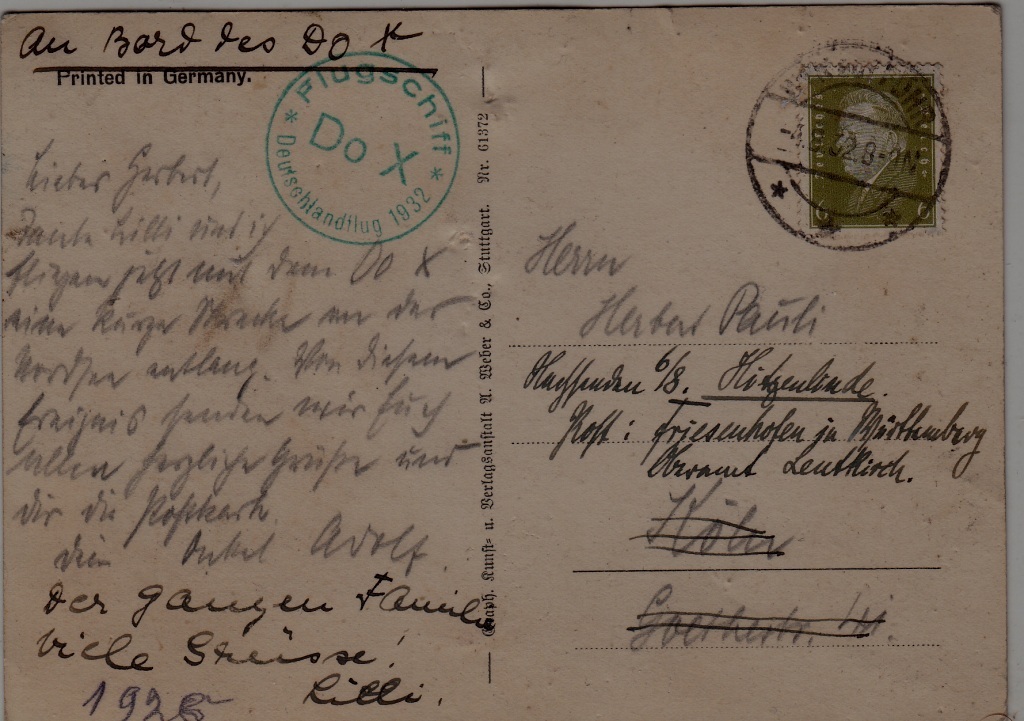 An Bord des Do X
Printed in Germany.
Flugschiff
Do X
* Deutschlandflug 1932 *
Lieber Herbert,
Tante Lilli und ich
fliegen jetzt mit dem Do X
eine kurze Strecke an der
Nordsee entlang. Von diesem
Ereignis senden wir Euch
allen herzliche Grüße und
dir die Postkarte
dein Onkel Adolf.
Der ganzen Familie
viele Grüsse!
Lilli.
Graph. Kunst- u. Verlagsanstalt A. Weber & Co., Stuttgart. Nr. 61372
32.8-
6 6
Herrn
Herbert Pauli
Nachsenden 6/8. Hitzenlinde.
Post: Friesenhofen in Württemberg
Oberamt Leutkirch.
Köln
Goethestr.